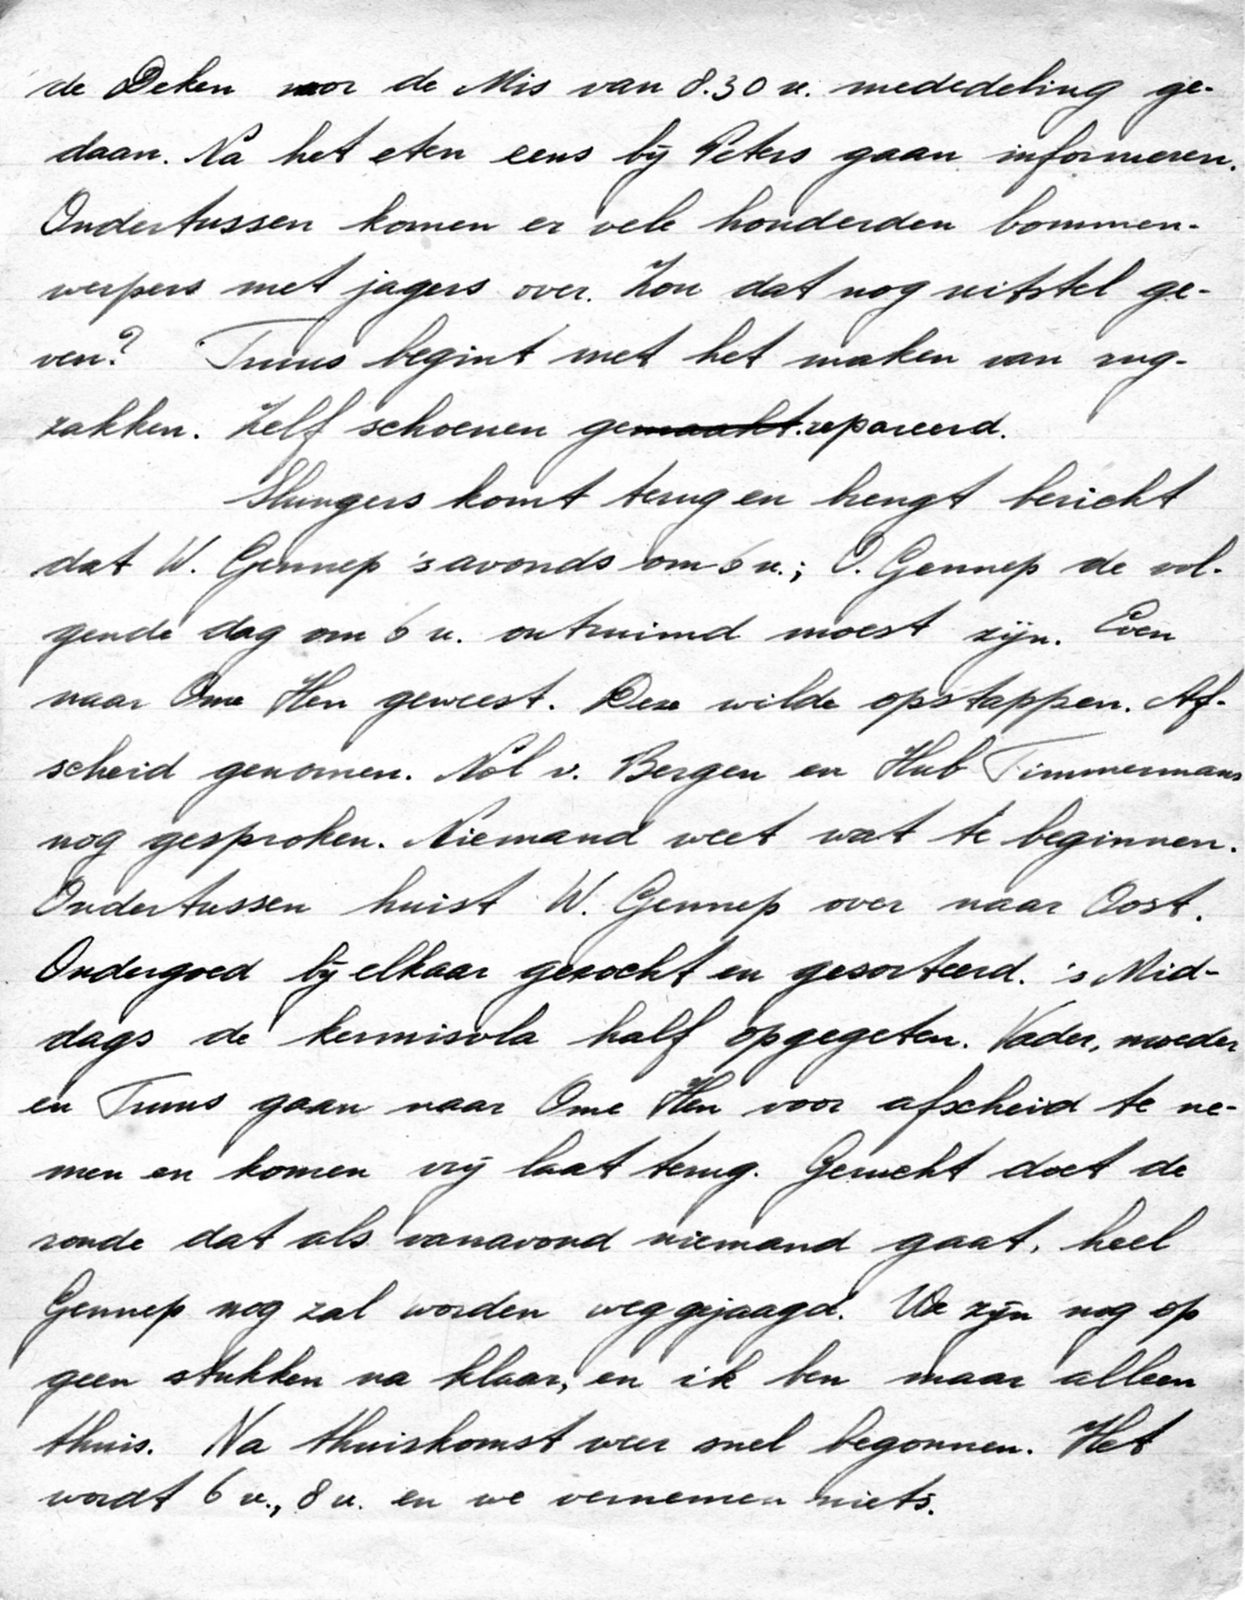 de Deken voor de Mis van 8.30 u. mededeling ge-
daan. Na het eten eens bij Peters gaan informeren.
Ondertussen komen er vele honderden bommen-
werpers met jagers over. Zou dat nog uitstel ge-
ven? Truus begint met het maken van rug-
zakken. Zelf schoenen gemaakt.repareerd.
komt terug en brengt bericht
dat W. Gennep 's avonds om 6 u.; O. Gennep de vol-
gende dag om 6 u. ontruimd moest zijn. Even
naar Ome Hen geweest. Deze wilde opstappen. Af-
scheid genomen. Nol v. Bergen en Hub Timmermans
nog gesproken. Niemand weet wat te beginnen.
Ondertussen huist W. Gennep over naar Oost.
Ondergoed bij elkaar gezocht en gesorteerd. 's Mid-
dags de half opgegeten. Vader, moeder
en Truus gaan naar Ome Hen voor afscheid te ne-
men en komen vrij laat terug. Gerucht doet de
ronde dat als vanavond niemand gaat, heel
Gennep nog zal worden weggejaagd. We zijn nog op
geen stukken na klaar, en ik ben maar alleen
thuis. Na thuiskomst weer snel begonnen. Het
wordt 6 u., 8 u. en we vernemen niets.